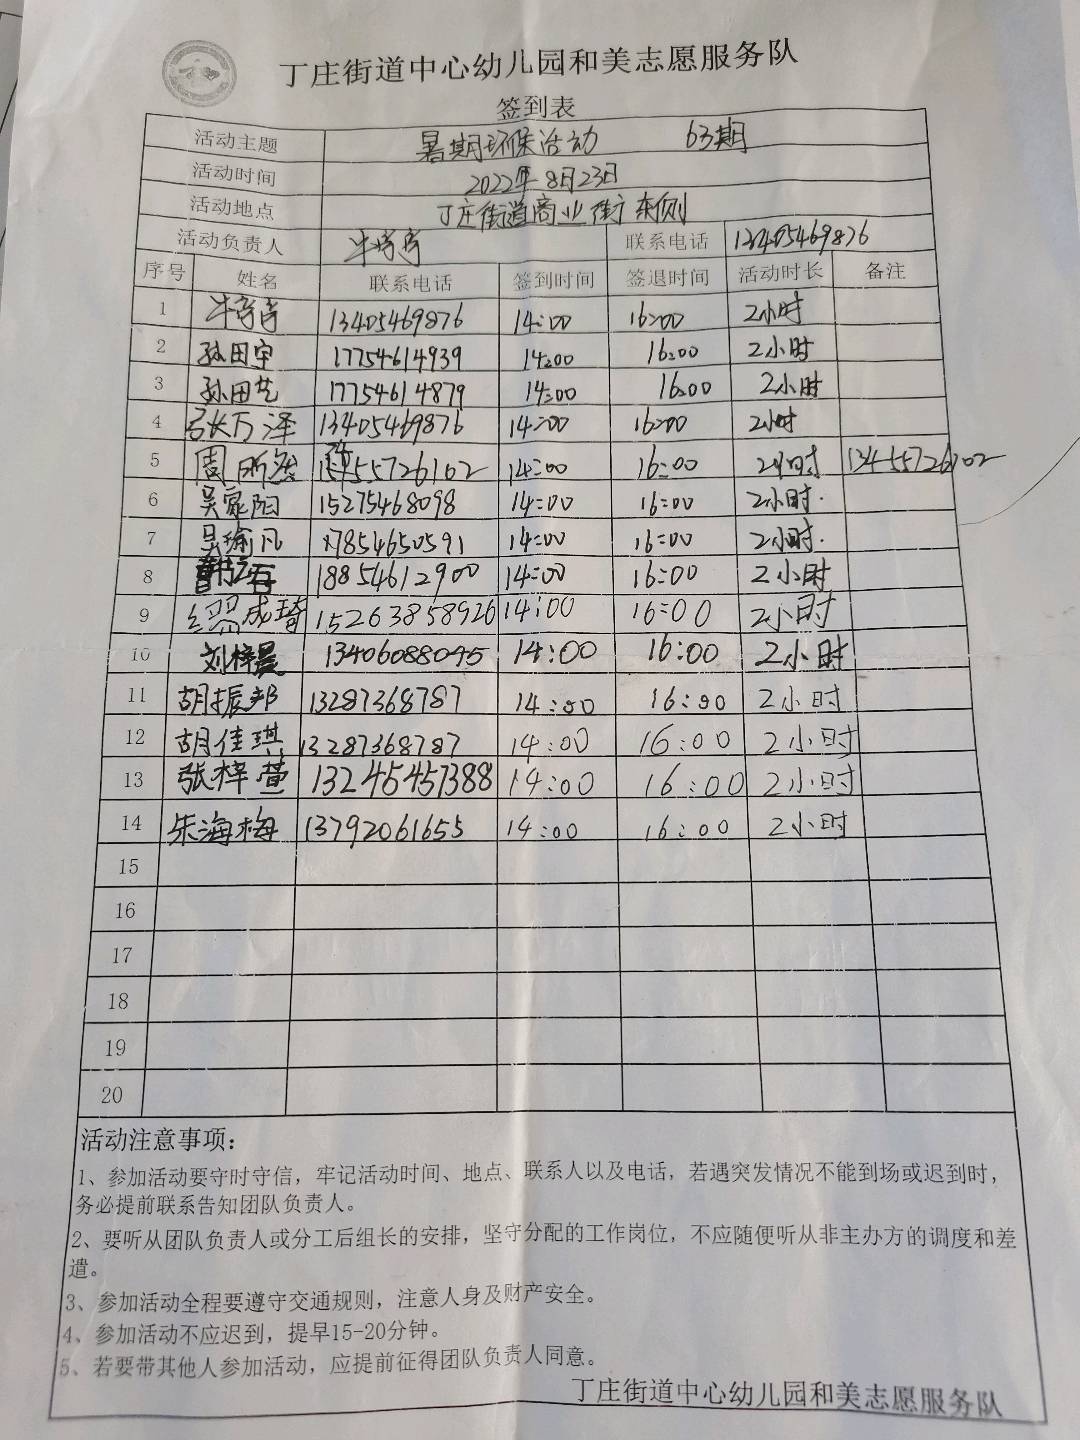 丁庄街道中心幼儿园和美志愿服务队
签到表
活动主题 暑期环保活动 63期
活动时间 2022年8月23日
活动地点 丁庄街道商业街东侧
活动负责人 联系电话 13405469876
序号 姓名 联系电话 签到时间 签退时间 活动时长 备注
1 13405469876 14:00 16:00 2小时
2 孙田宇 17754614939 14:00 16:00 2小时
3 孙田艺 17754614879 14:00 16:00 2小时
4 张万泽 13405469876 14:00 16:00 2小时
5 周 14:00 16:00 2小时 13455726102
6 吴家阳 15275468098 14:00 16:00 2小时.
7 吴瑜凡 17854650591 14:00 16:00 2小时.
8 18854612900 14:00 16:00 2小时
9 成琦 15263858926 14:00 16:00 2小时
10 刘梓晨 13406088095 14:00 16:00 2小时
11 胡振邦 13287368787 14:00 16:00 2小时
12 胡佳琪 13287368787 14:00 16:00 2小时
13 张梓萱 13245457388 14:00 16:00 2小时
14 朱海梅 13792061655 14:00 16:00 2小时
15
16
17
18
19
20
活动注意事项：
1、参加活动要守时守信，牢记活动时间、地点、联系人以及电话，若遇突发情况不能到场或迟到时，
务必提前联系告知团队负责人。
2、要听从团队负责人或分工后组长的安排，坚守分配的工作岗位，不应随便听从非主办方的调度和差
遣。
3、参加活动全程要遵守交通规则，注意人身及财产安全。
4、参加活动不应迟到，提早15-20分钟。
5、若要带其他人参加活动，应提前征得团队负责人同意。
丁庄街道中心幼儿园和美志愿服务队